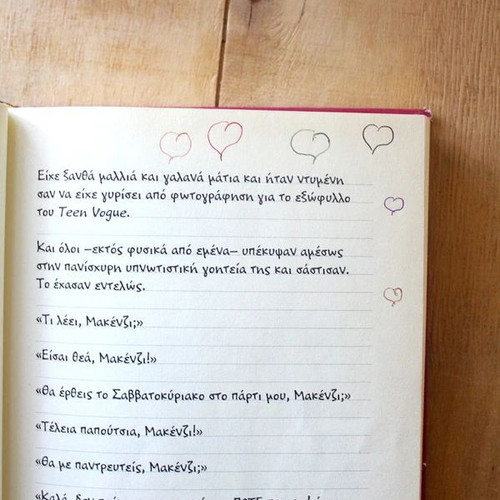 Είχε ξανθά μαλλιά και γαλανά μάτια και ήταν ντυμένη
σαν να είχε γυρίσει από φωτογράφηση για το εξώφυλλο
του Teen Vogue.
Και όλοι –εκτός φυσικά από εμένα– υπέκυψαν αμέσως
στην πανίσχυρη υπνωτιστική γοητεία της και σάστισαν.
Το έχασαν εντελώς.
«Τι λέει, Μακένζι;»
«Είσαι θεά, Μακένζι!»
«Θα έρθεις το Σαββατοκύριακο στο πάρτι μου, Μακένζι;»
«Τέλεια παπούτσια, Μακένζι!»
«Θα με παντρευτείς, Μακένζι;»